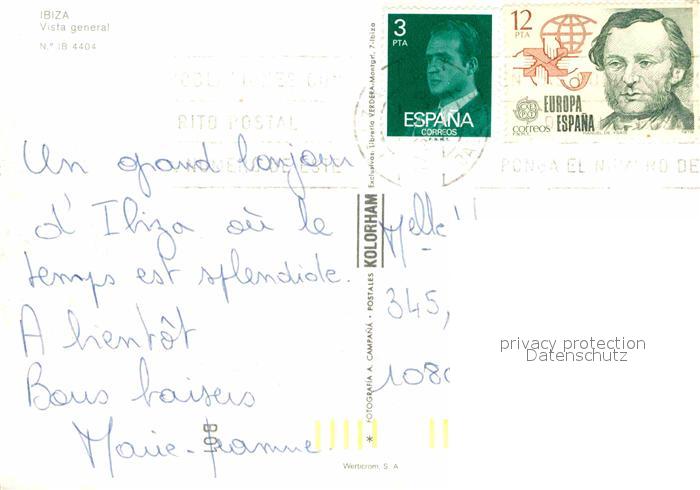 IBIZA
Vista general
N.° IB 4404
3
PTA
ESPAÑA
CORREOS
F.N.M.T.
12
PTA
EUROPA
correos ESPAÑA
MANUEL DE YSASI
RITO POSTAL
PONGA EL NUMERO DE
Un grand bonjour
d'Ibiza où le
temps est splendide.
A bientôt
Bons baisers
Marie-Jeanne
Exclusivas: Librería VERDERA-Montgrí, 7-Ibiza
KOLORHAM
* FOTOGRAFIA A. CAMPAÑÁ - POSTALES
Melle
345,
1080
privacy protection
Datenschutz
108
Werticrom, S. A